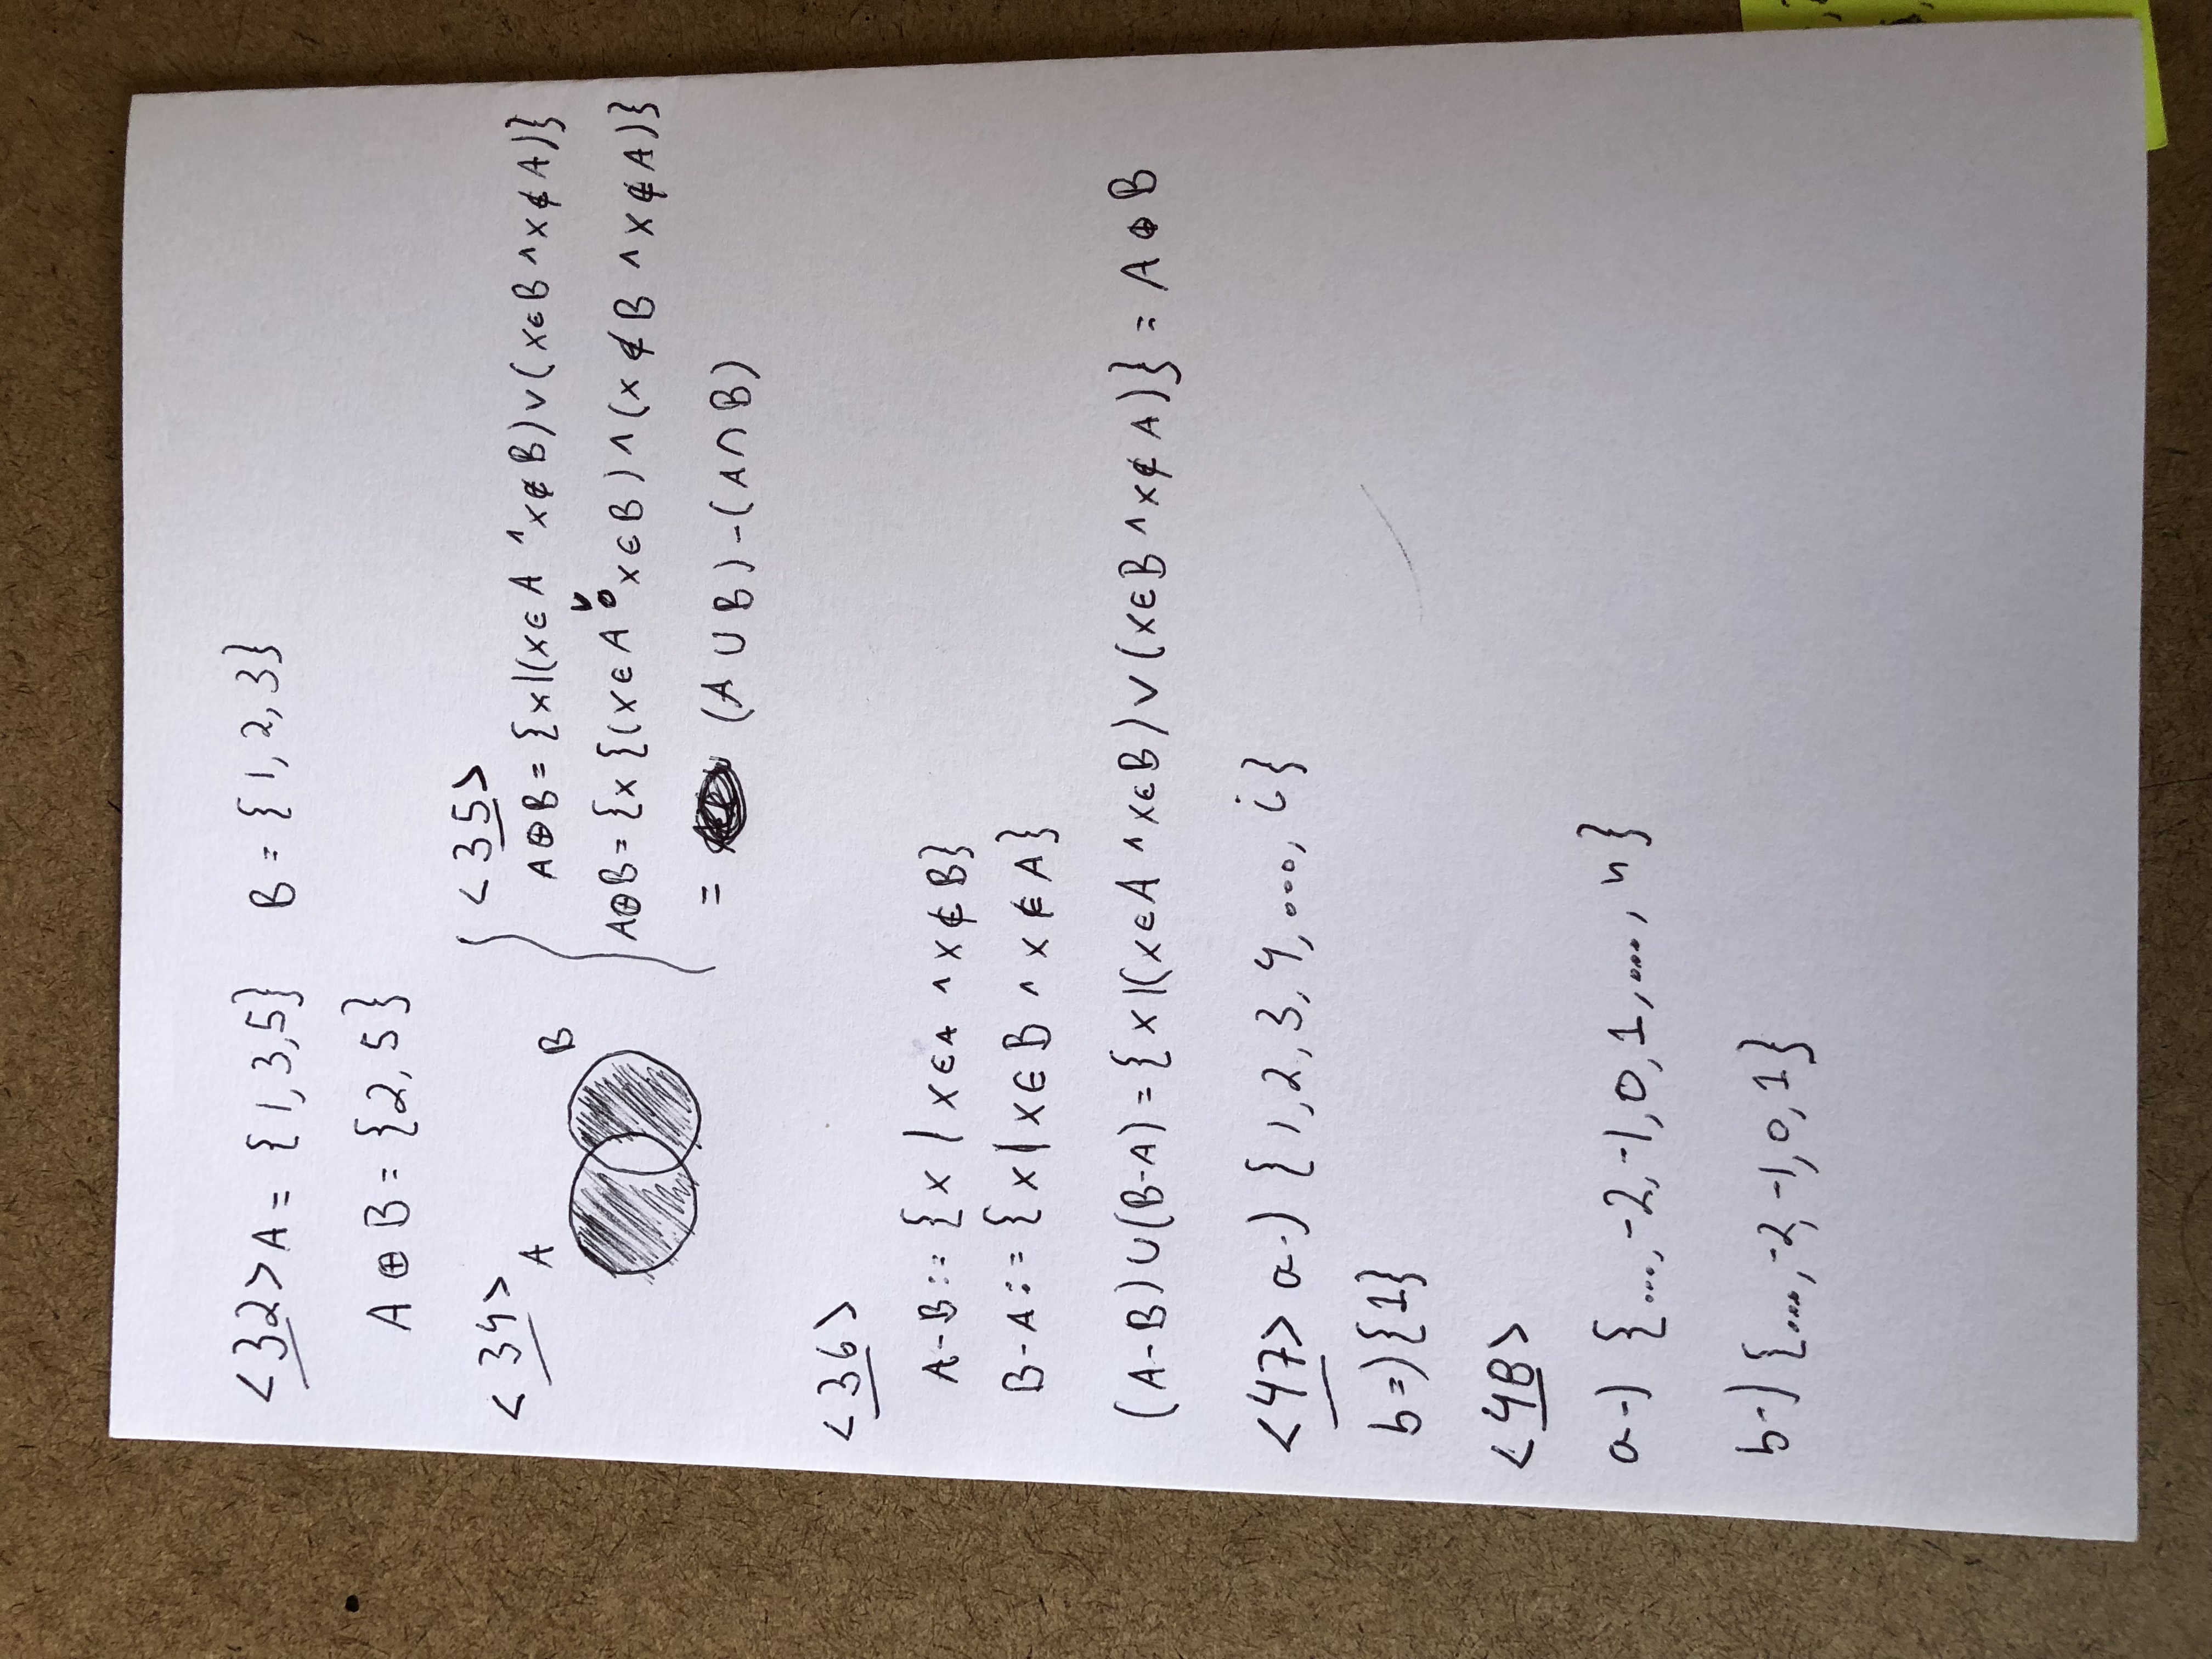 <32> A = {1,3,5} B = {1,2,3}
A ⊕ B = {2,5}
<34>
A
B
<35>
A⊕B = {x|(x∈A ∧ x∉B) ∨ (x∈B ∧ x∉A)}
∨
A⊕B = {x {(x∈A x∈B) ∧ (x∉B ∧ x∉A)}
= (A ∪ B) - (A ∩ B)
<36>
A-B := {x | x∈A ∧ x∉B}
B-A := {x | x∈B ∧ x∉A}
(A-B) ∪ (B-A) = {x |(x∈A ∧ x∈B) ∨ (x∈B ∧ x∉A)} = A ⊕ B
<47> a-) {1,2,3,4,..., i}
b=) {1}
<48>
a-) {..., -2, -1, 0, 1, ..., n}
b-) {..., -2, -1, 0, 1}